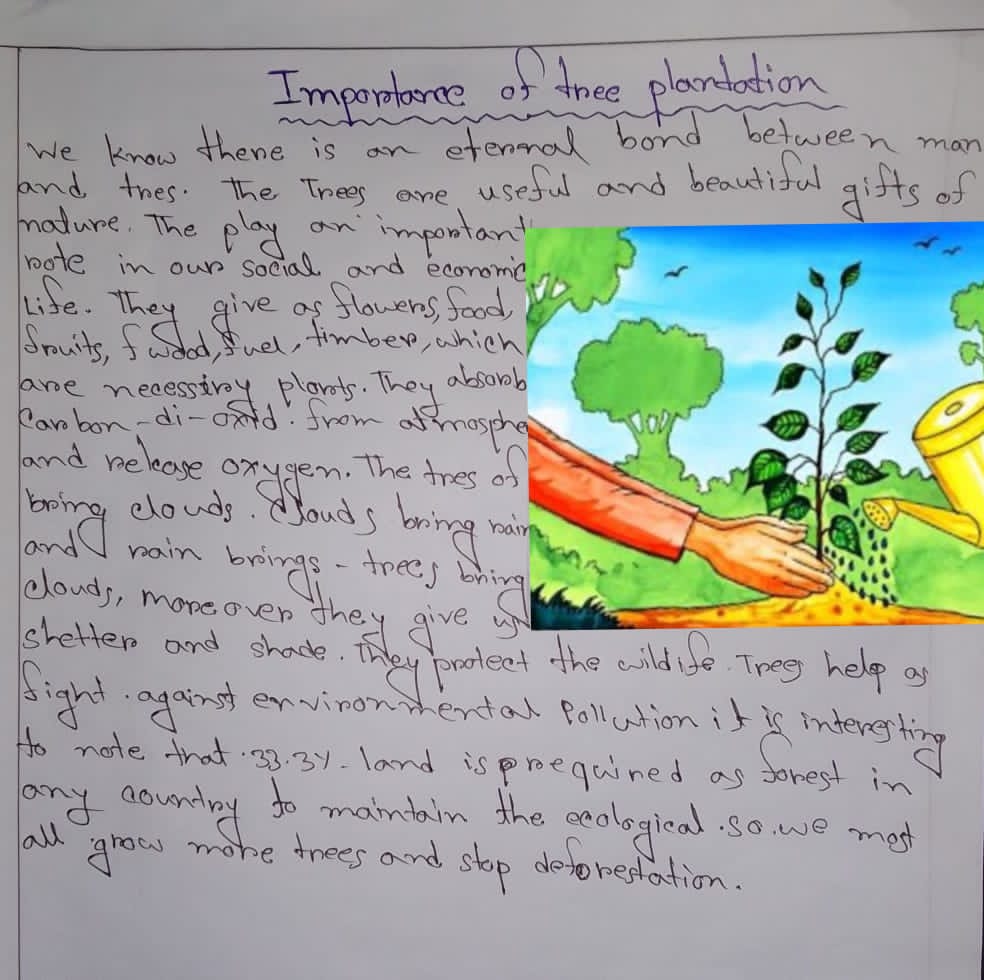 Importance of tree plantation
We know there is an eternal bond between man
and tres. The Trees are useful and beautiful gifts of
nature. The play an important
rote in our social and economic
Life. They give as flowers, food,
fruits, f wood, fuel, timber, which
are necessiry plants. They absorb
Carbon-di-oxid. from atmosphe
and release oxygen. The tres of
bring clouds. Clouds bring rain
and rain brings - trees bring
clouds, more over they give us
shetter and shade. They protect the wildife. Trees help as
fight. against environmental Pollution it is interesting
to note that .33.3%. land is prequired as forest in
any country to maintain the ecological. so. we most
all grow more trees and stop deforestation.